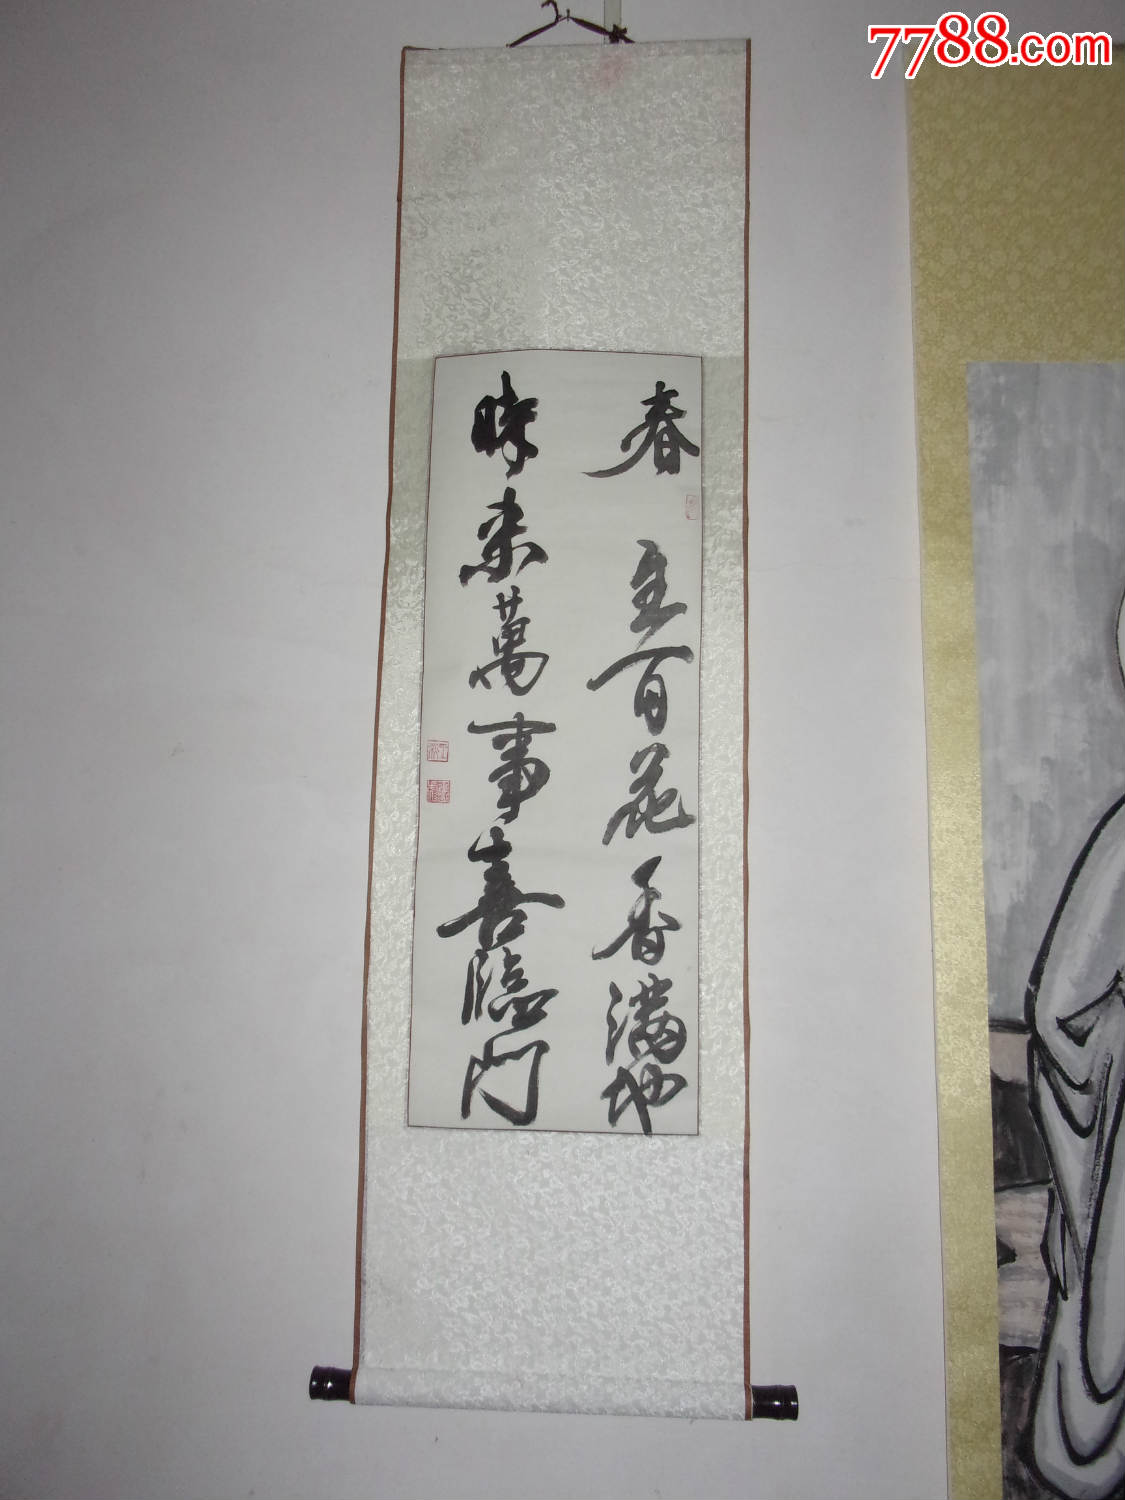 7788.com
春至百花香滿地
時来萬事喜臨門